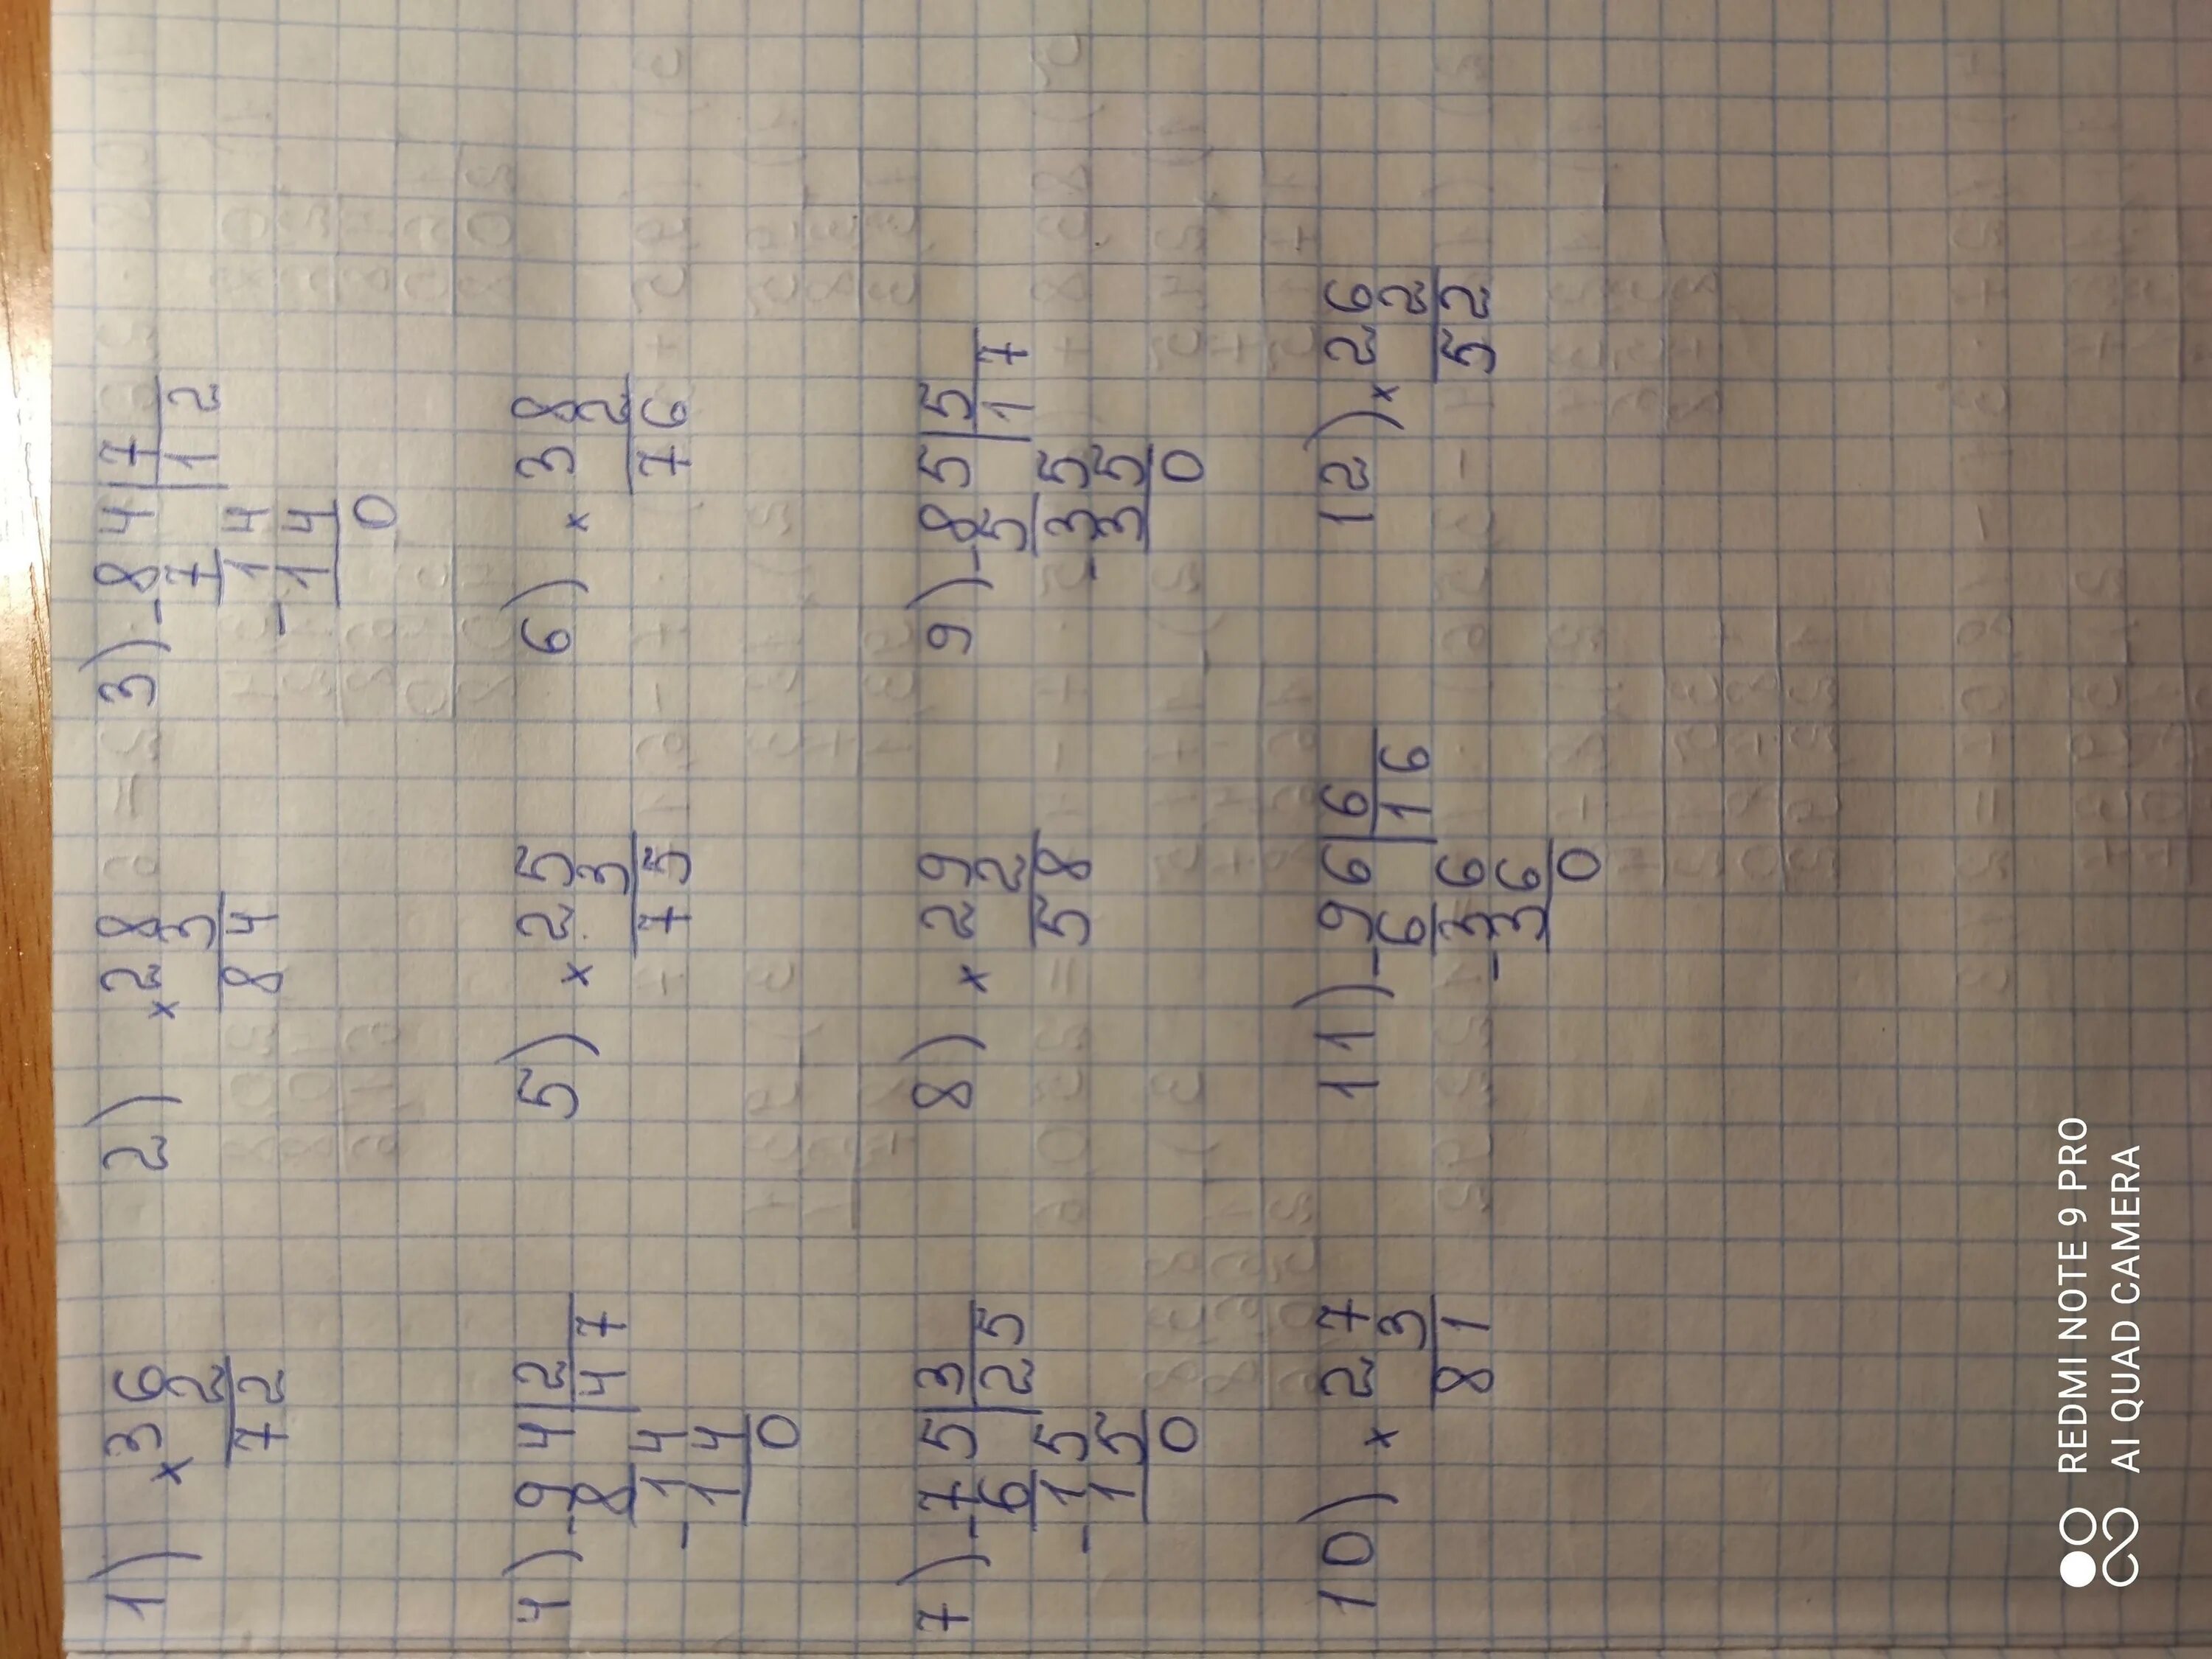 1) × 36 2) × 28 3) - 84 | 7
2 3 7 | 12
72 84 14
- 14
0
4) - 94 | 2 5) × 25 6) × 38
8 | 47 3 2
14 75 76
- 14
0
7) - 75 | 3 8) × 29 9) - 85 | 5
6 | 25 2 5 | 17
15 58 35
- 15 - 35
0 0
10) × 27 11) - 96 | 6 12) × 26
3 6 | 16 2
81 36 52
- 36
0
REDMI NOTE 9 PRO
AI QUAD CAMERA